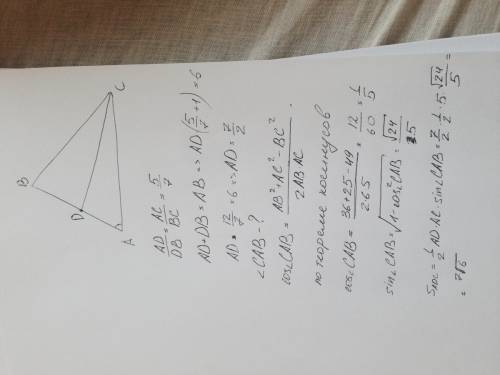 B
D
A
C
AD/DB = AC/BC = 5/7
AD+DB = AB => AD(5/7+1) = 6
AD · 12/7 = 6 => AD = 7/2
∠CAB - ?
cos∠CAB = (AB²+AC²-BC²)/(2AB·AC) .
по теореме косинусов
cos∠CAB = (36+25-49)/(2·6·5) = 12/60 = 1/5
sin∠CAB = √(1-cos²∠CAB) = √24/5
S ADC = 1/2 AD·AC·sin∠CAB = 7/2 · 1/2 · 5 √24/5 =
= 7√6/2